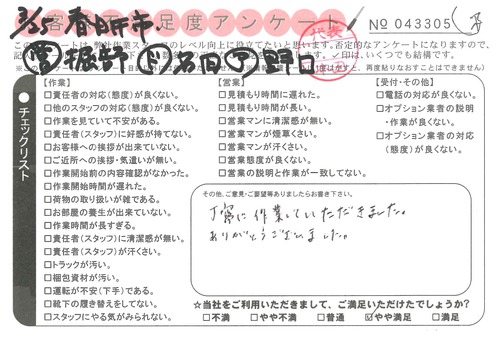 3/25 春日井市
客 足度アンケート No 043305
このアンケートは、弊社作業スタッフのレベル向上に役立てたいと思います。否定的なアンケートになりますので、
営 堀部 ド 石田 ア 野口
代表
チェックリスト
【作業】
□責任者の対応(態度)が良くない。
□他のスタッフの対応(態度)が良くない。
□作業を見ていて不安がある。
□責任者(スタッフ)に好感が持てない。
□お客様への挨拶が出来ていない。
□ご近所への挨拶・気遣いが無い。
□作業開始前の内容確認がなかった。
□作業開始時間が遅れた。
□荷物の取り扱いが雑である。
□お部屋の養生が出来ていない。
□作業時間が長すぎる。
□責任者(スタッフ)に清潔感が無い。
□責任者(スタッフ)が汗くさい。
□トラックが汚い。
□梱包資材が汚い。
□運転が不安(下手)である。
□靴下の履き替えをしてない。
□スタッフにやる気がみられない。
【営業】
□見積もり時間に遅れた。
□見積もり時間が長い。
□営業マンに清潔感が無い。
□営業マンが煙草くさい。
□営業マンが汗くさい。
□営業態度が良くない。
□営業の説明と作業が一致してない。
【受付・その他】
□電話の対応が良くない。
□オプション業者の説明
・作業が良くない。
□オプション業者の対応
(態度)が良くない。
その他、ご意見・ご要望等ありましたらお書き下さい。
丁寧に作業していただきました。
ありがとうございました。
☆当社をご利用いただきまして、ご満足いただけたでしょうか?
□不満 □やや不満 □普通 ☑やや満足 □満足